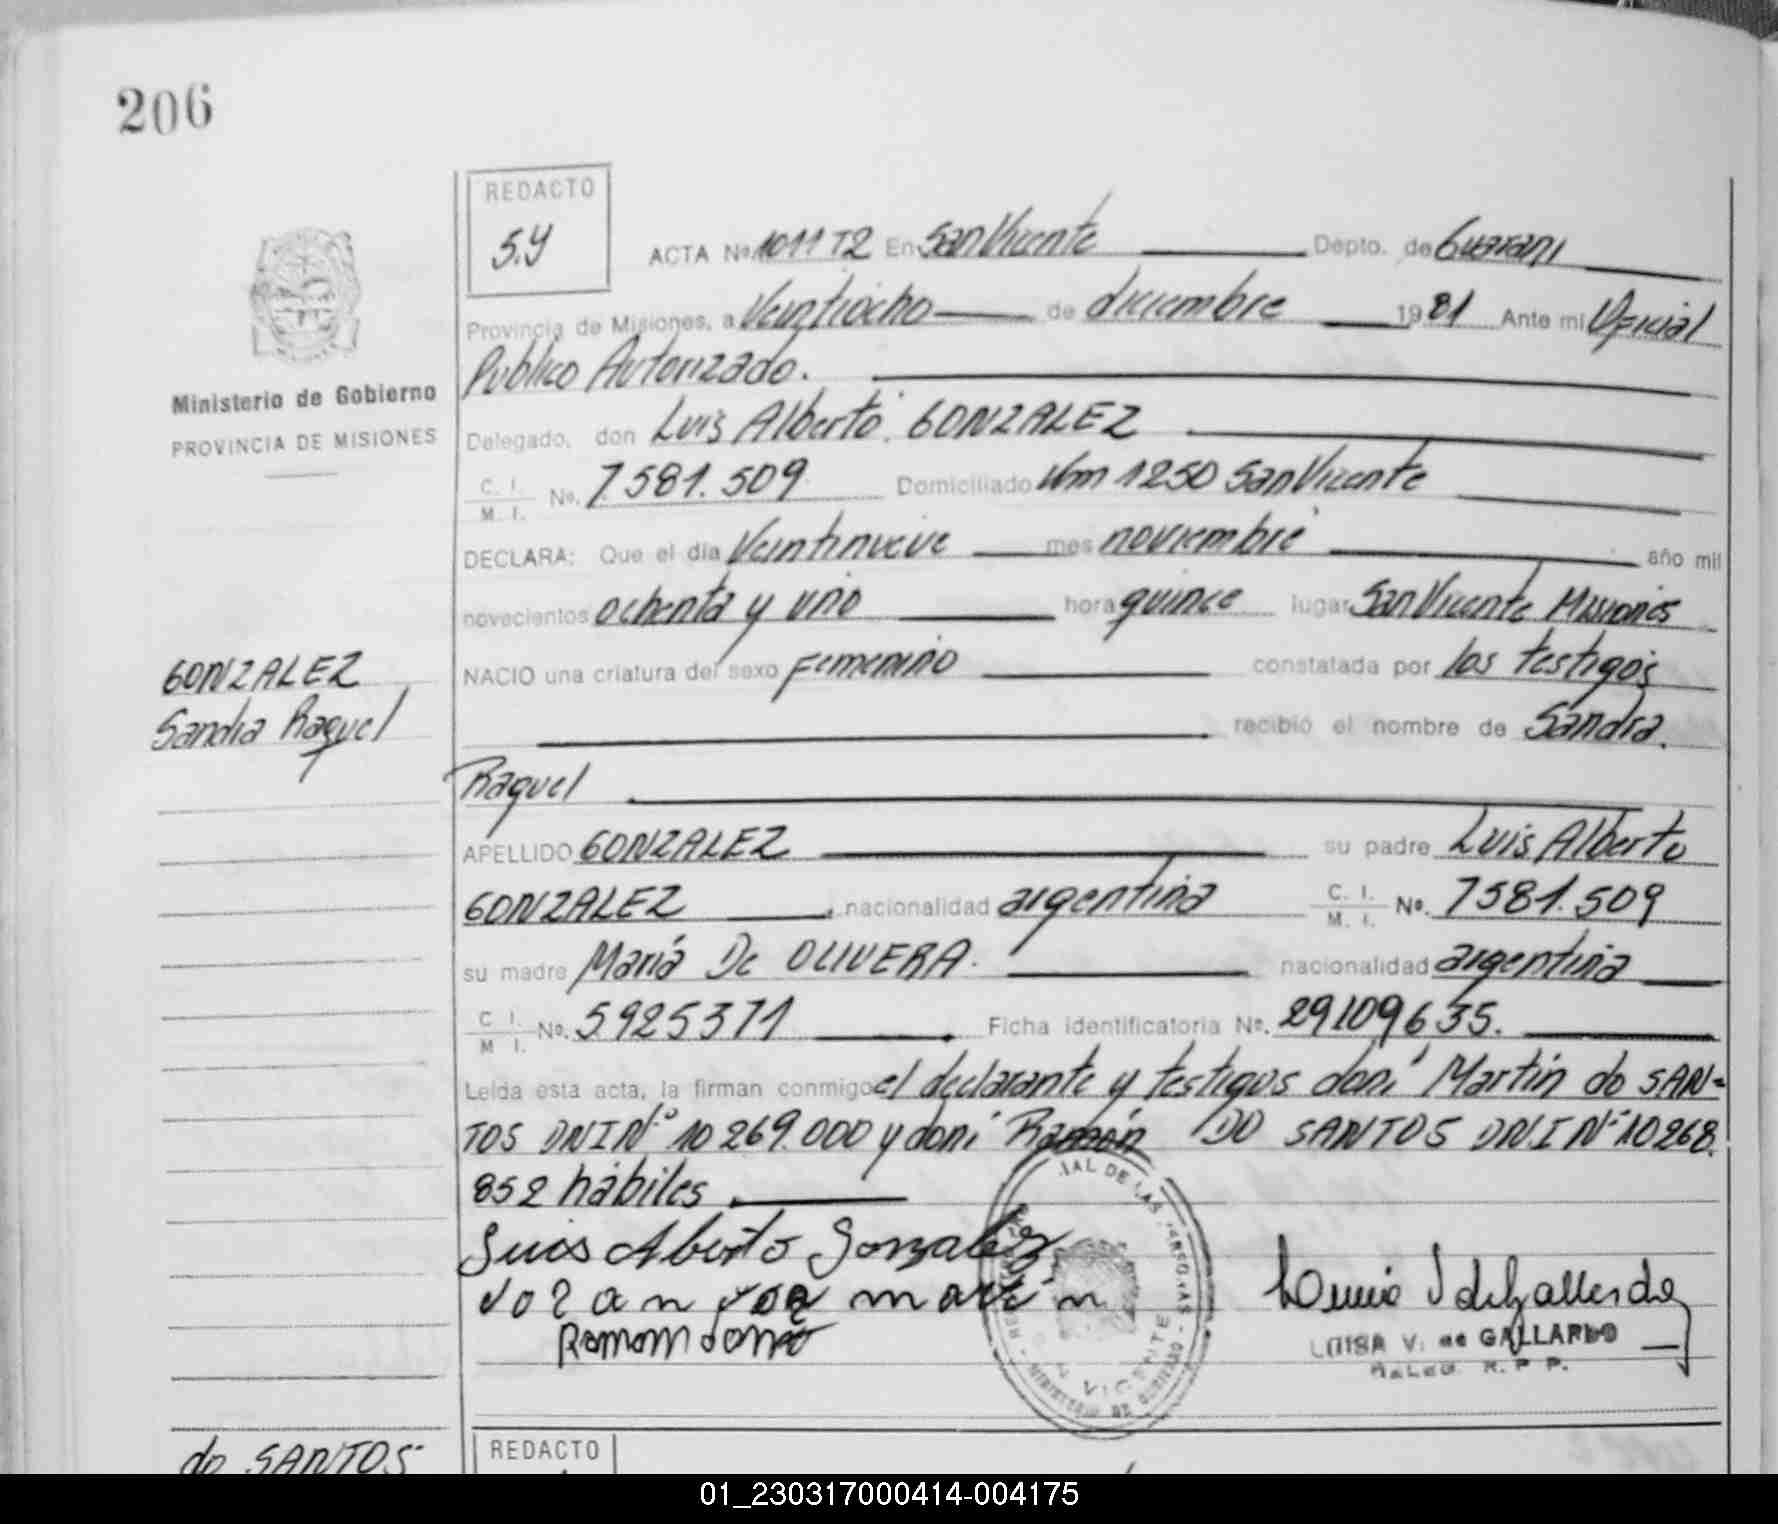 206
REDACTO
S.Y
ACTA Nº 1011 T2 En San Vicente Depto. de Guarani
Provincia de Misiones, a Veintiocho de diciembre 1981 Ante mi Oficial
Público Autorizado.
Ministerio de Gobierno
PROVINCIA DE MISIONES
Delegado, don Luis Alberto GONZALEZ
C. I. M. I. No. 7.581.509 Domiciliado Km 1250 San Vicente
DECLARA: Que el día Veintinueve mes noviembre año mil
novecientos ochenta y uno hora quince lugar San Vicente Misiones
NACIO una criatura del sexo femenino constatada por los testigos
GONZALEZ
Sandra Raquel
recibió el nombre de Sandra
Raquel
APELLIDO GONZALEZ su padre Luis Alberto
GONZALEZ nacionalidad argentina C. I. M. I. Nº. 7581.509
su madre María De OLIVERA. nacionalidad argentina
C. I. M. I. No. 5925371 Ficha identificatoria Nº. 29109635.
Leída esta acta, la firman conmigo el declarante y testigos don: Martin do SAN=
TOS DNI Nº 10269.000 y don: Ramón DO SANTOS DNI Nº 10268.
852 hábiles
Luis Alberto Gonzalez
LUISA V. de GALLARDO
R. P. P.
VICENTE
do SANTOS
REDACTO
01_230317000414-004175